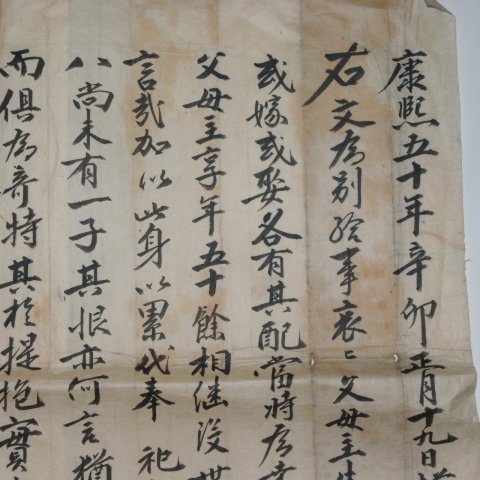 康熙五十年辛卯正月十九日
右文爲別給事哀〻父母主
或嫁或娶各有其配當時
父母主享年五十餘相継沒世
言哉加以此身以累代奉祀
八尚未有一子其恨亦何言猶
而俱爲奇特其於提抱實